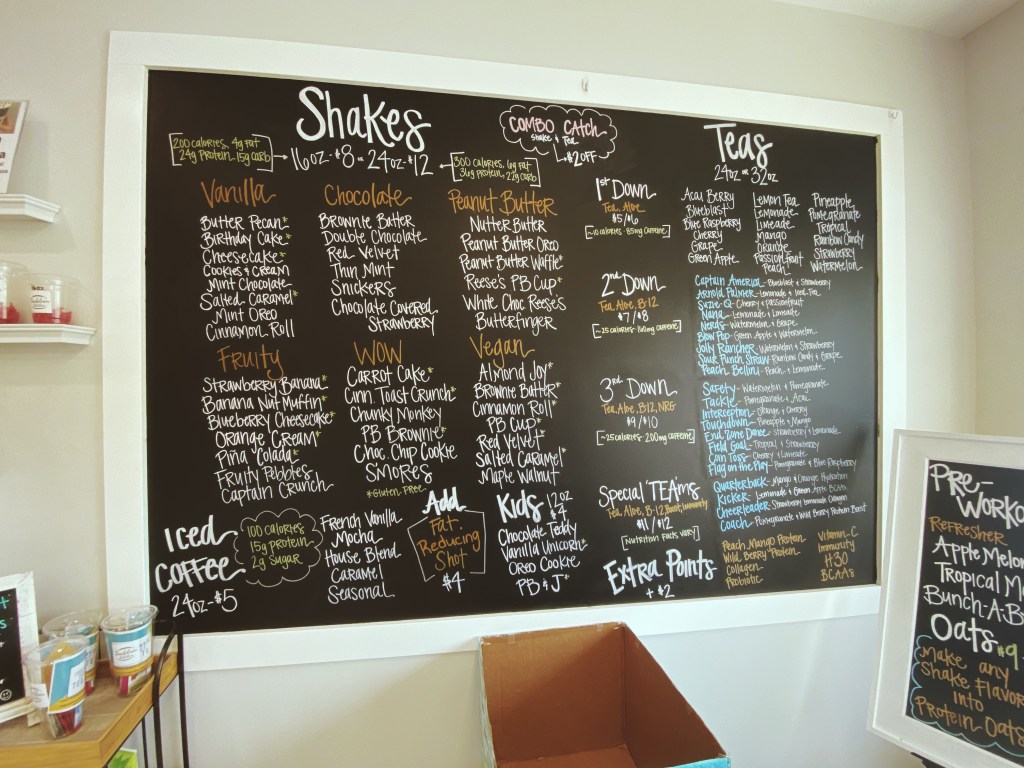 Shakes
200 calories, 4g fat
24g Protein-15g carb
16oz-$8 or 24oz-$12
300 calories, 6g fat
36g protein, 22g carb
COMBO CATCH
Shake & Tea
$2 OFF
Vanilla
Butter Pecan*
Birthday Cake*
Cheesecake*
Cookies & Cream
Mint Chocolate
Salted Caramel*
Mint Oreo
Cinnamon Roll
Chocolate
Brownie Batter
Double Chocolate
Red Velvet
Thin Mint
Snickers
Chocolate Covered
Strawberry
Peanut Butter
Nutter Butter
Peanut Butter Oreo
Peanut Butter Waffle*
Reese's PB Cup*
White Choc Reese's
Butterfinger
Fruity
Strawberry Banana*
Banana Nut Muffin*
Blueberry Cheesecake*
Orange Cream*
Piña Colada*
Fruity Pebbles
Captain Crunch
WOW
Carrot Cake*
Cinn Toast Crunch*
Chunky Monkey
PB Brownie*
Choc. Chip Cookie
S'Mores
*Gluten Free
Vegan
Almond Joy*
Brownie Batter*
Cinnamon Roll*
PB Cup*
Red Velvet*
Salted Caramel*
Maple Walnut
Iced
Coffee
24oz-$5
100 calories
15g protein
2g Sugar
French Vanilla
Mocha
House Blend
Caramel
Seasonal
Add
Fat
Reducing
Shot
$4
Kids 12oz
$4
Chocolate Teddy
Vanilla Unicorn*
Oreo Cookie
PB & J*
Teas
24oz or 32oz
1st Down
Tea, Aloe
$5/$6
~10 calories- 85mg caffeine
2nd Down
Tea, Aloe, B-12
$7/$8
~25 calories- 160mg caffeine
3rd Down
Tea, Aloe, B-12, NRG
$9/$10
~25 calories- 200mg caffeine
Special 'TEA'ms
Tea, Aloe, B-12, Boost, Immunity
$11/$12
Nutrition Facts Vary
Extra Points
+ $2
Acai Berry
Blueblast
Blue Raspberry
Cherry
Grape
Green Apple
Lemon Tea
Lemonade
Limeade
Mango
Orange
Passionfruit
Peach
Pineapple
Pomegranate
Tropical
Rainbow Candy
Strawberry
Watermelon
Captain America- Blueblast & Strawberry
Arnold Palmer- Lemonade & Iced Tea
Suzie Q- Cherry & Passionfruit
Nana- Lemonade & Limeade
Nerds- Watermelon & Grape
Blow Pop- Green Apple & Watermelon
Jolly Rancher- Watermelon & Strawberry
Duck Punch Straw- Rainbow Candy & Grape
Peach Bellini- Peach & Lemonade
Safety- Watermelon & Pomegranate
Tackle- Pomegranate & Acai
Interception- Orange & Cherry
Touchdown- Pineapple & Mango
End Zone Dance- Strawberry & Lemonade
Field Goal- Tropical & Strawberry
Coin Toss- Cherry & Limeade
Flag on the Play- Pomegranate & Blue Raspberry
Quarterback- Mango & Orange Hydration
Kicker- Lemonade & Green Apple BCAA's
Cheerleader- Strawberry Lemonade
Coach- Pomegranate & Wild Berry Protein Boost
Peach Mango Protein
Wild Berry Protein
Collagen
Probiotic
Vitamin-C
Immunity
H30
BCAA's
Pre-
Refresher
Apple Melon
Tropical
Oats $9
Make any
Shake Flavor
into
Protein Oats